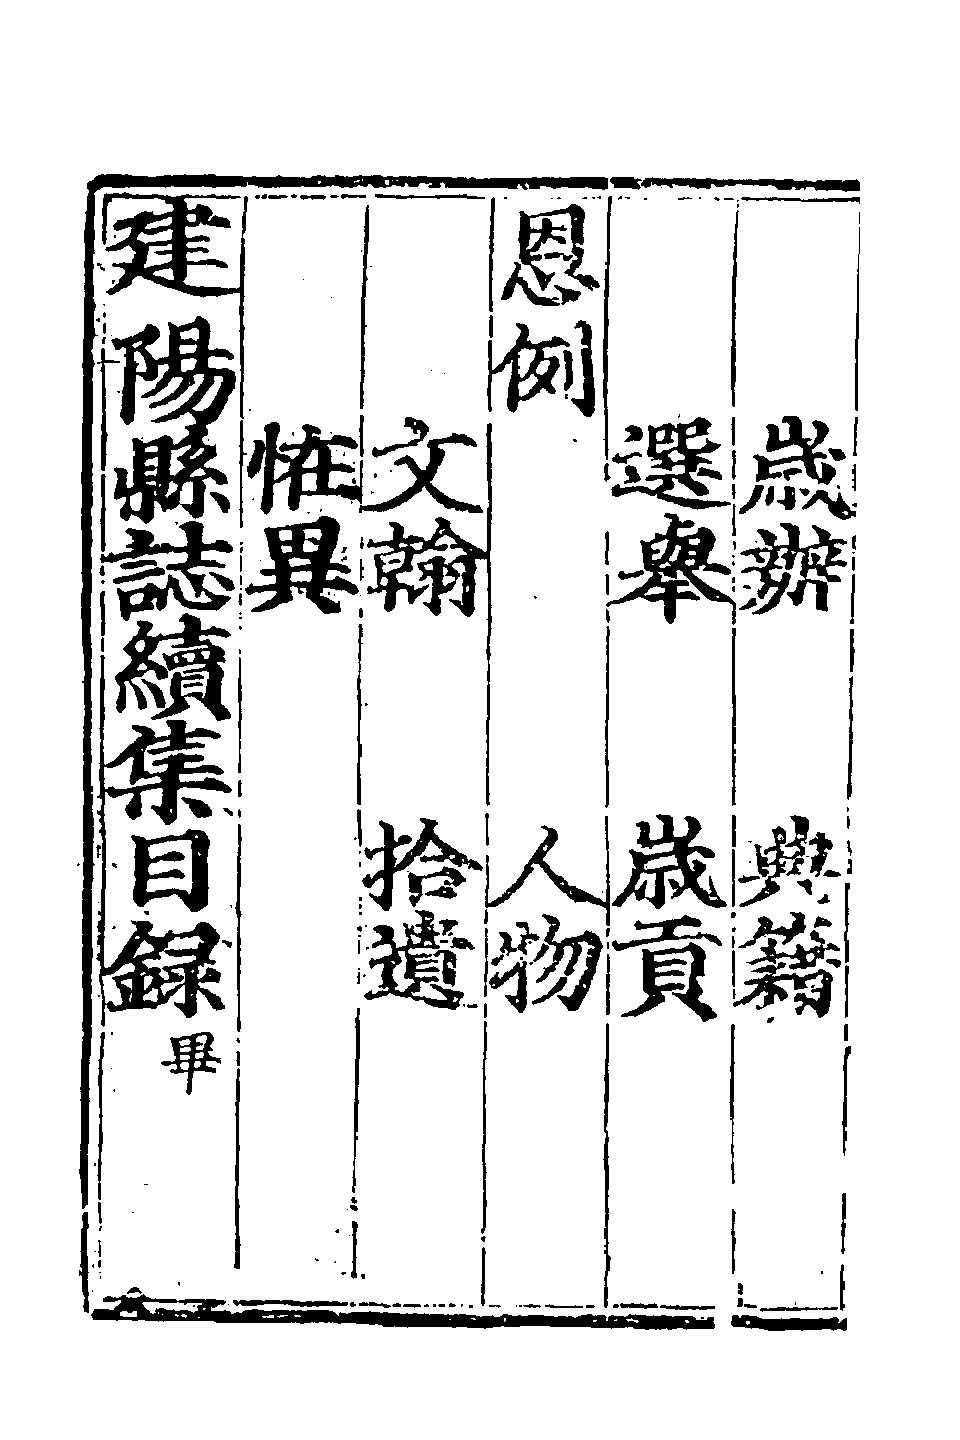 歲辦 典籍
選舉 歲貢
恩例 人物
文翰 拾遺
恠異
建陽縣誌續集目録畢